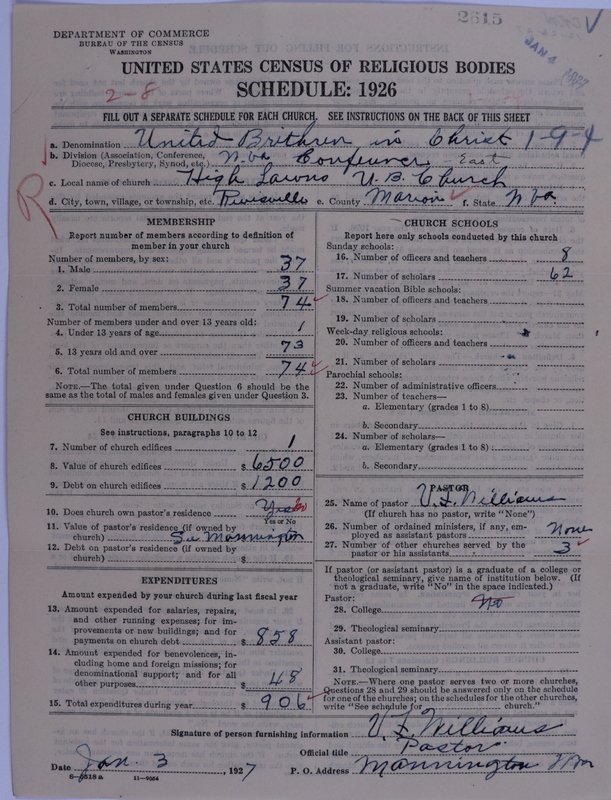 2615
JAN 4 1927
DEPARTMENT OF COMMERCE
BUREAU OF THE CENSUS
WASHINGTON
UNITED STATES CENSUS OF RELIGIOUS BODIES
2-8
SCHEDULE: 1926
FILL OUT A SEPARATE SCHEDULE FOR EACH CHURCH. SEE INSTRUCTIONS ON THE BACK OF THIS SHEET
a. Denomination United Brithren in Christ 1-9-4
b. Division (Association, Conference, Diocese, Presbytery, Synod, etc.) W.Va Conference East
c. Local name of church High Lawns U.B. Church
d. City, town, village, or township, etc. Rivisville e. County Marion f. State W Va
R
MEMBERSHIP
Report number of members according to definition of
member in your church
Number of members, by sex:
1. Male 37
2. Female 37
3. Total number of members 74
Number of members under and over 13 years old:
4. Under 13 years of age 1
5. 13 years old and over 73
6. Total number of members 74
NOTE.—The total given under Question 6 should be the
same as the total of males and females given under Question 3.
CHURCH BUILDINGS
See instructions, paragraphs 10 to 12
7. Number of church edifices 1
8. Value of church edifices $ 6500
9. Debt on church edifices $ 1200
10. Does church own pastor's residence Yes
Yes or No
11. Value of pastor's residence (if owned by
church) See Mannington
12. Debt on pastor's residence (if owned by
church) $
EXPENDITURES
Amount expended by your church during last fiscal year
13. Amount expended for salaries, repairs,
and other running expenses; for im-
provements or new buildings; and for
payments on church debt $ 858
14. Amount expended for benevolences, in-
cluding home and foreign missions; for
denominational support; and for all
other purposes $ 48
15. Total expenditures during year $ 906
CHURCH SCHOOLS
Report here only schools conducted by this church
Sunday schools:
16. Number of officers and teachers 8
17. Number of scholars 62
Summer vacation Bible schools:
18. Number of officers and teachers
19. Number of scholars
Week-day religious schools:
20. Number of officers and teachers
21. Number of scholars
Parochial schools:
22. Number of administrative officers
23. Number of teachers—
a. Elementary (grades 1 to 8)
b. Secondary
24. Number of scholars—
a. Elementary (grades 1 to 8)
b. Secondary
PASTOR
25. Name of pastor V.L. Williams
(If church has no pastor, write "None")
26. Number of ordained ministers, if any, em-
ployed as assistant pastors None
27. Number of other churches served by the
pastor or his assistants 3
If pastor (or assistant pastor) is a graduate of a college or
theological seminary, give name of institution below. (If
not a graduate, write "No" in the space indicated.)
Pastor:
28. College No
29. Theological seminary
Assistant pastor:
30. College
31. Theological seminary
NOTE.—Where one pastor serves two or more churches,
Questions 28 and 29 should be answered only on the schedule
for one of the churches; on the schedules for the other churches,
write "See schedule for church."
Signature of person furnishing information V. L. Williams
Official title Pastor
Date Jan. 3, 1927 P. O. Address Mannington W Va
8-5518 a 11-9064